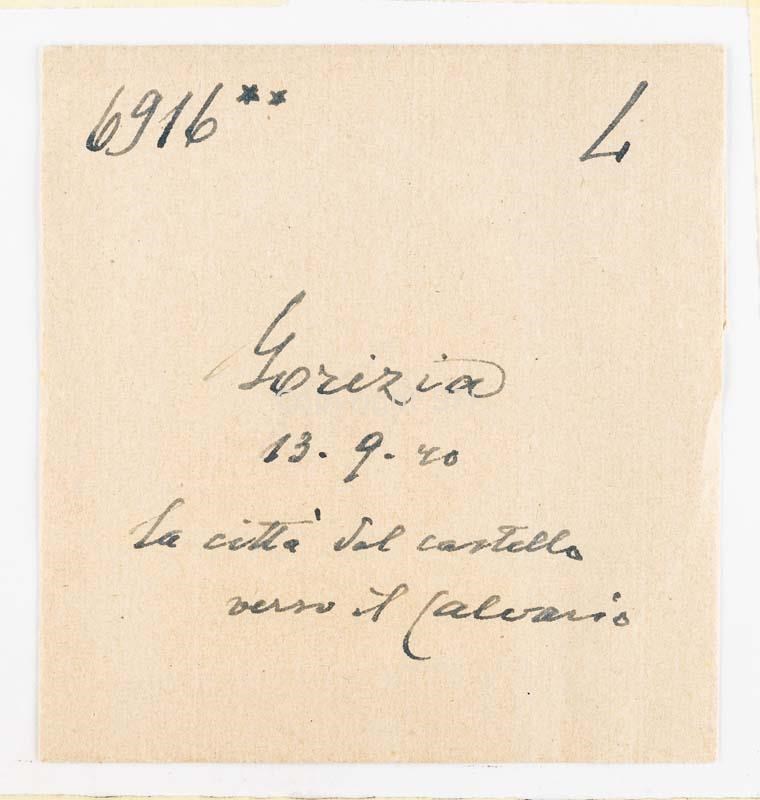 6916** L
Gorizia
13. 9. 40
La città dal castello
verso il Calvario